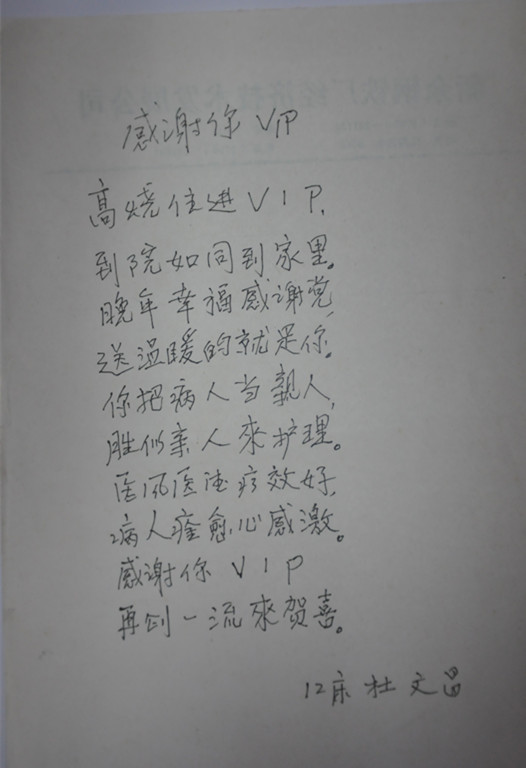 感谢你 VIP
高烧住进 VIP,
到院如同到家里。
晚年幸福感谢党,
送温暖的就是你。
你把病人当親人,
胜似亲人來护理。
医风医德疗效好,
病人痊愈心感激。
感谢你 VIP
再创一流來贺喜。
12床 杜文昌